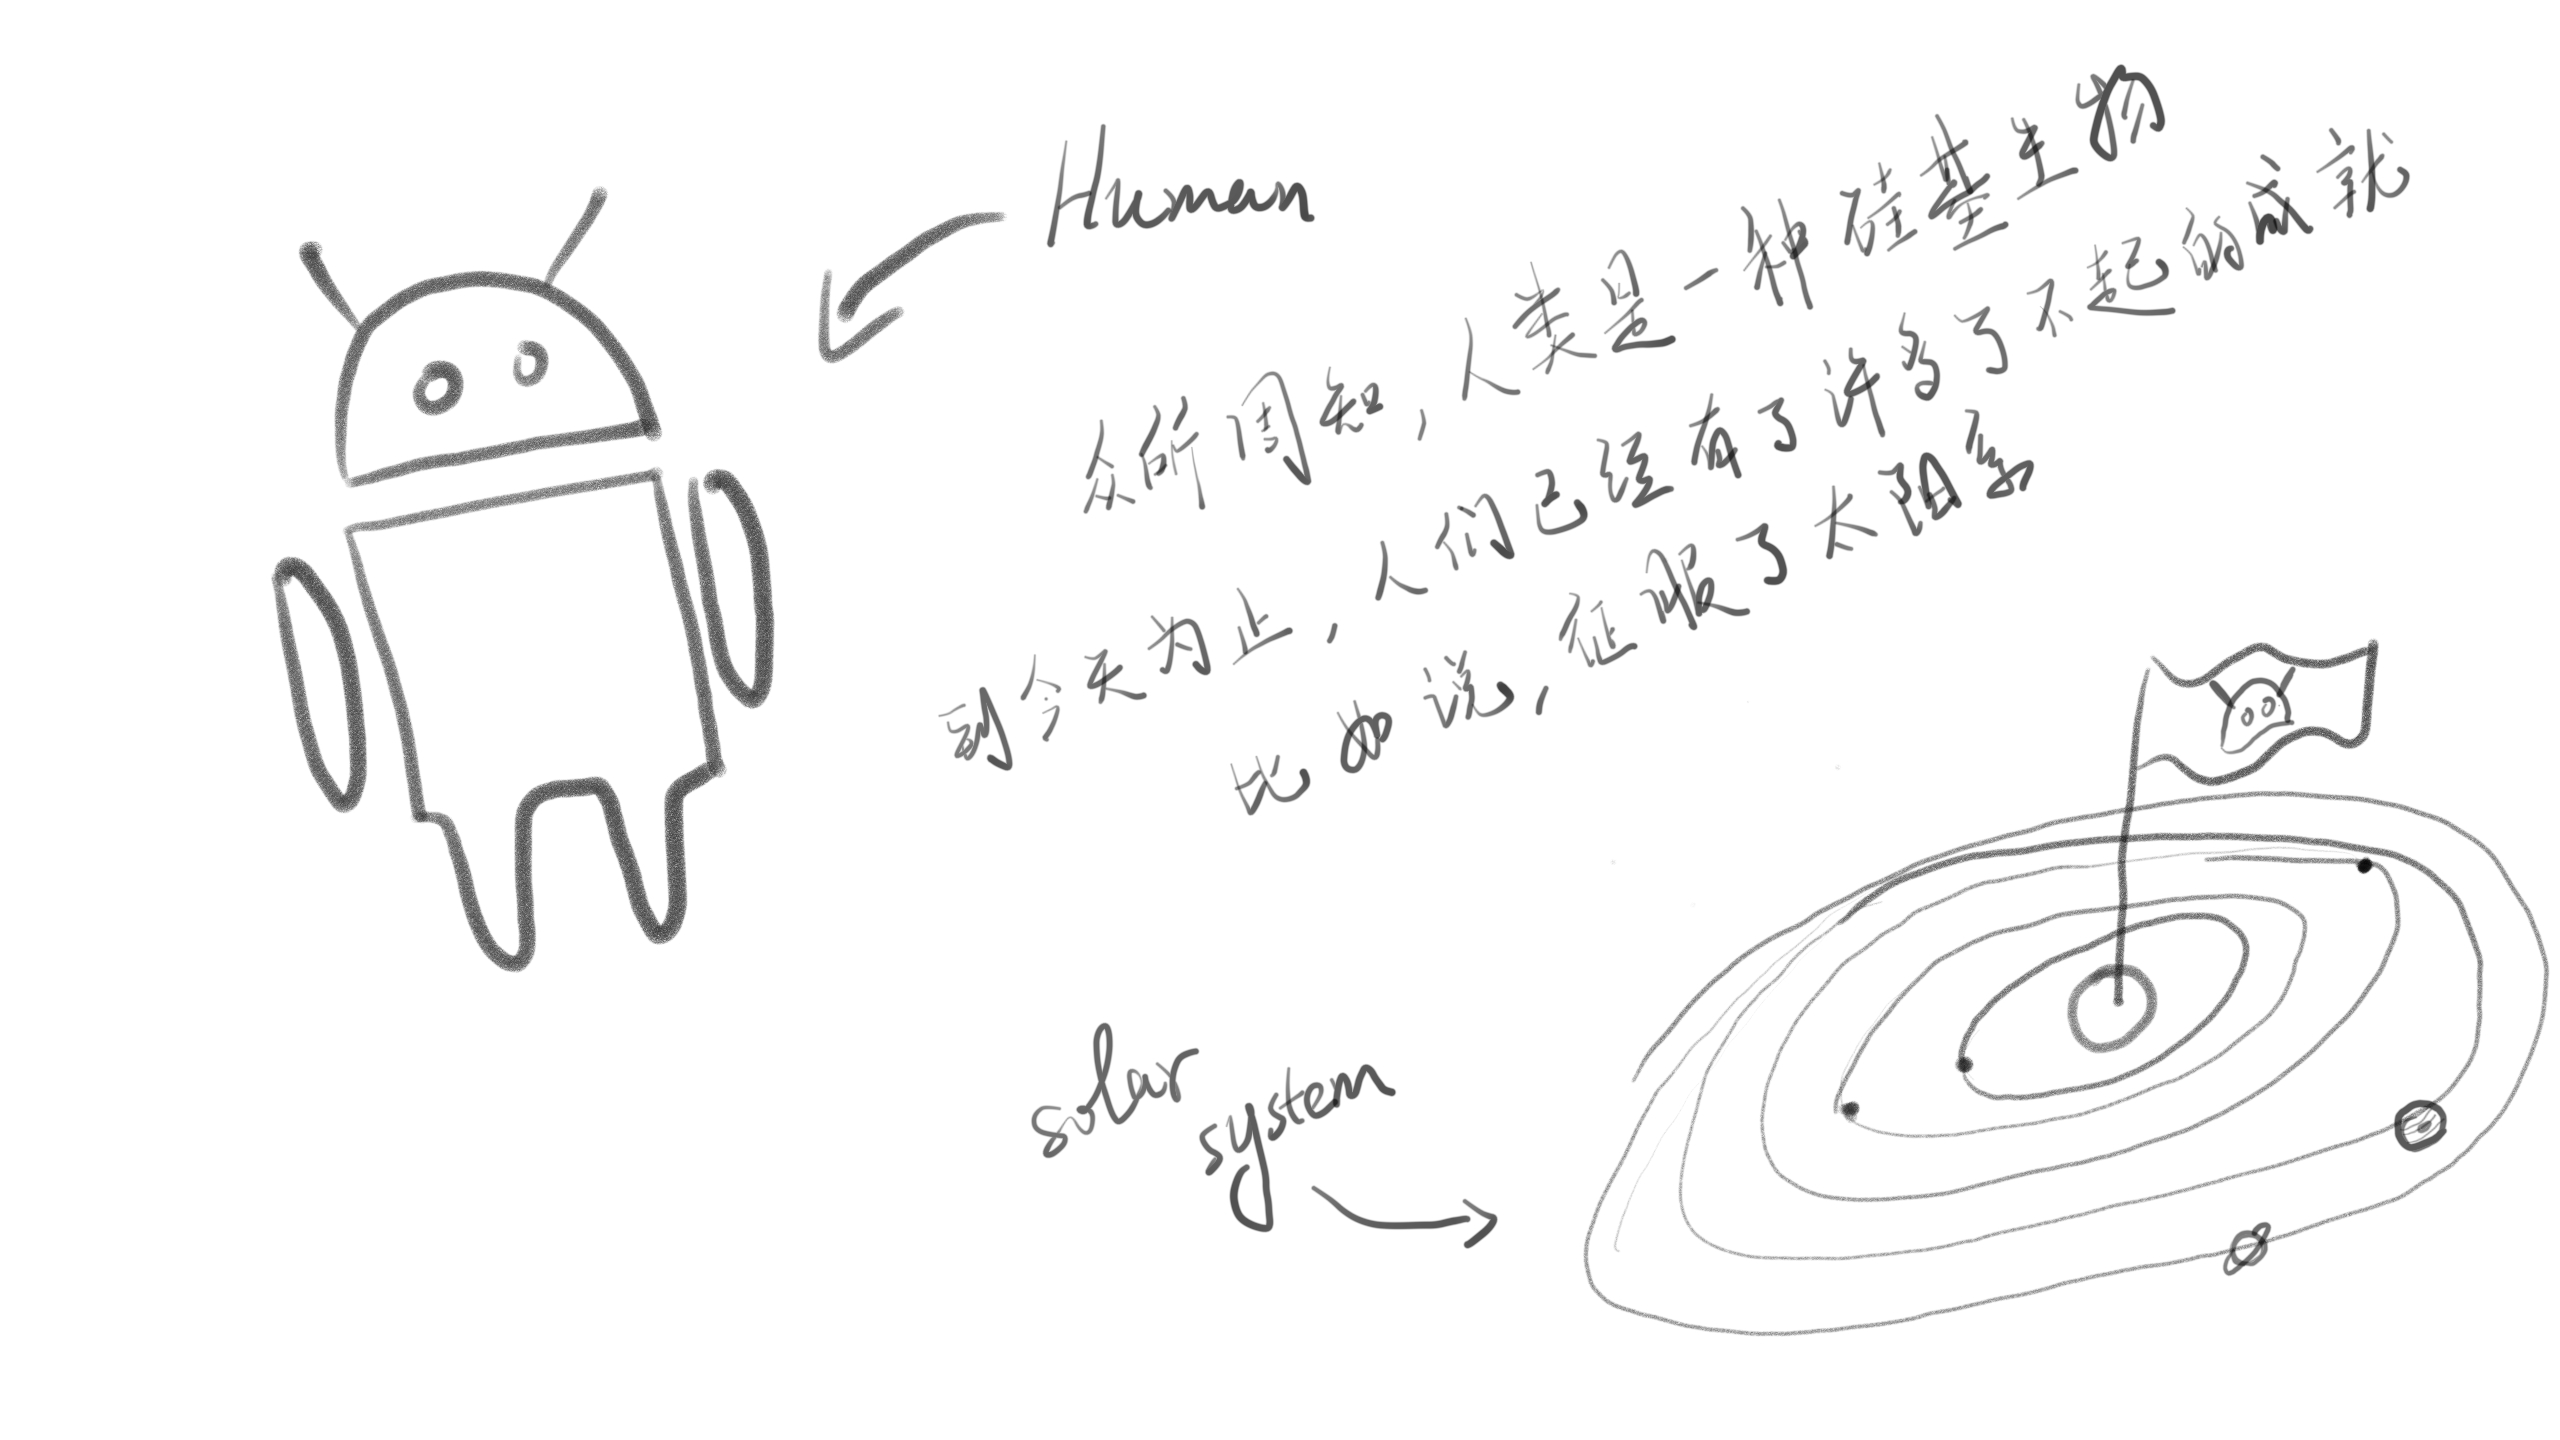 Human
众所周知，人类是一种硅基生物
到今天为止，人们已经有了许多了不起的成就
比如说，征服了太阳系
solar
system